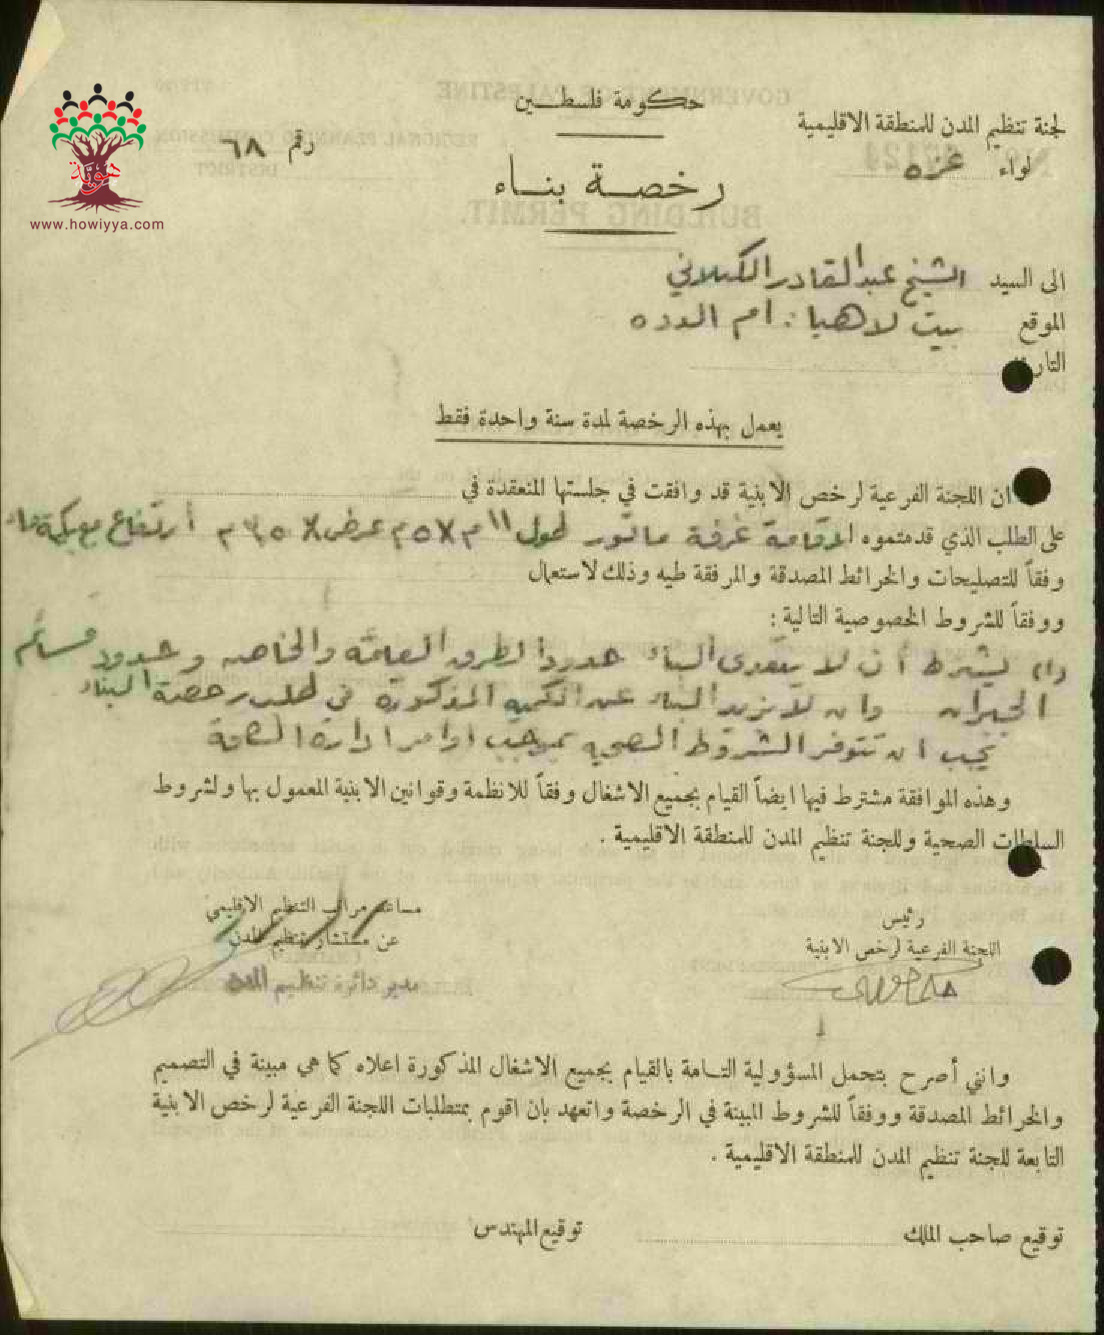 حكومة فلسطين
لجنة تنظيم المدن للمنطقة الاقليمية
لواء غزه
رقم ٦٨
هوية
www.howiyya.com
رخصة بناء
الى السيد الشيخ عبد القادر الكيلاني
الموقع بيت لاهيا : ام الدده
التار
يعمل بهذه الرخصة لمدة سنة واحدة فقط
ان اللجنة الفرعية لرخص الابنية قد وافقت في جلستها المنعقدة في
على الطلب الذي قدمتموه لاقامة غرفة ماتور طول ١١ م عرض ارتفاع مع بركة ماء
وفقاً للتصليحات والخرائط المصدقة والمرفقة طيه وذلك لاستعمال
ووفقاً للشروط الخصوصية التالية :
(١) يشترط ان لا يتعدى البناء حدود الطرق العامة والخاصه وحدود قسائم
الجيران وان لا يزيد البناء عن الكميه المذكورة في طلب رخصة البناء
يجب ان تتوفر الشروط الصحيه بموجب اوامر ادارة الصحة
وهذه الموافقة مشترط فيها ايضاً القيام بجميع الاشغال وفقاً للانظمة وقوانين الابنية المعمول بها ولشروط
السلطات الصحية وللجنة تنظيم المدن للمنطقة الاقليمية .
رئيس
اللجنة الفرعية لرخص الابنية
مساعد مراقب التنظيم الاقليمي
عن مستشار تنظيم المدن
مدير دائرة تنظيم المدن
وانني أصرح بتحمل المسؤولية التامة بالقيام بجميع الاشغال المذكورة اعلاه كما هي مبينة في التصميم
والخرائط المصدقة ووفقاً للشروط المبينة في الرخصة واتعهد بان اقوم بمتطلبات اللجنة الفرعية لرخص الابنية
التابعة للجنة تنظيم المدن للمنطقة الاقليمية .
توقيع صاحب الملك
توقيع المهندس